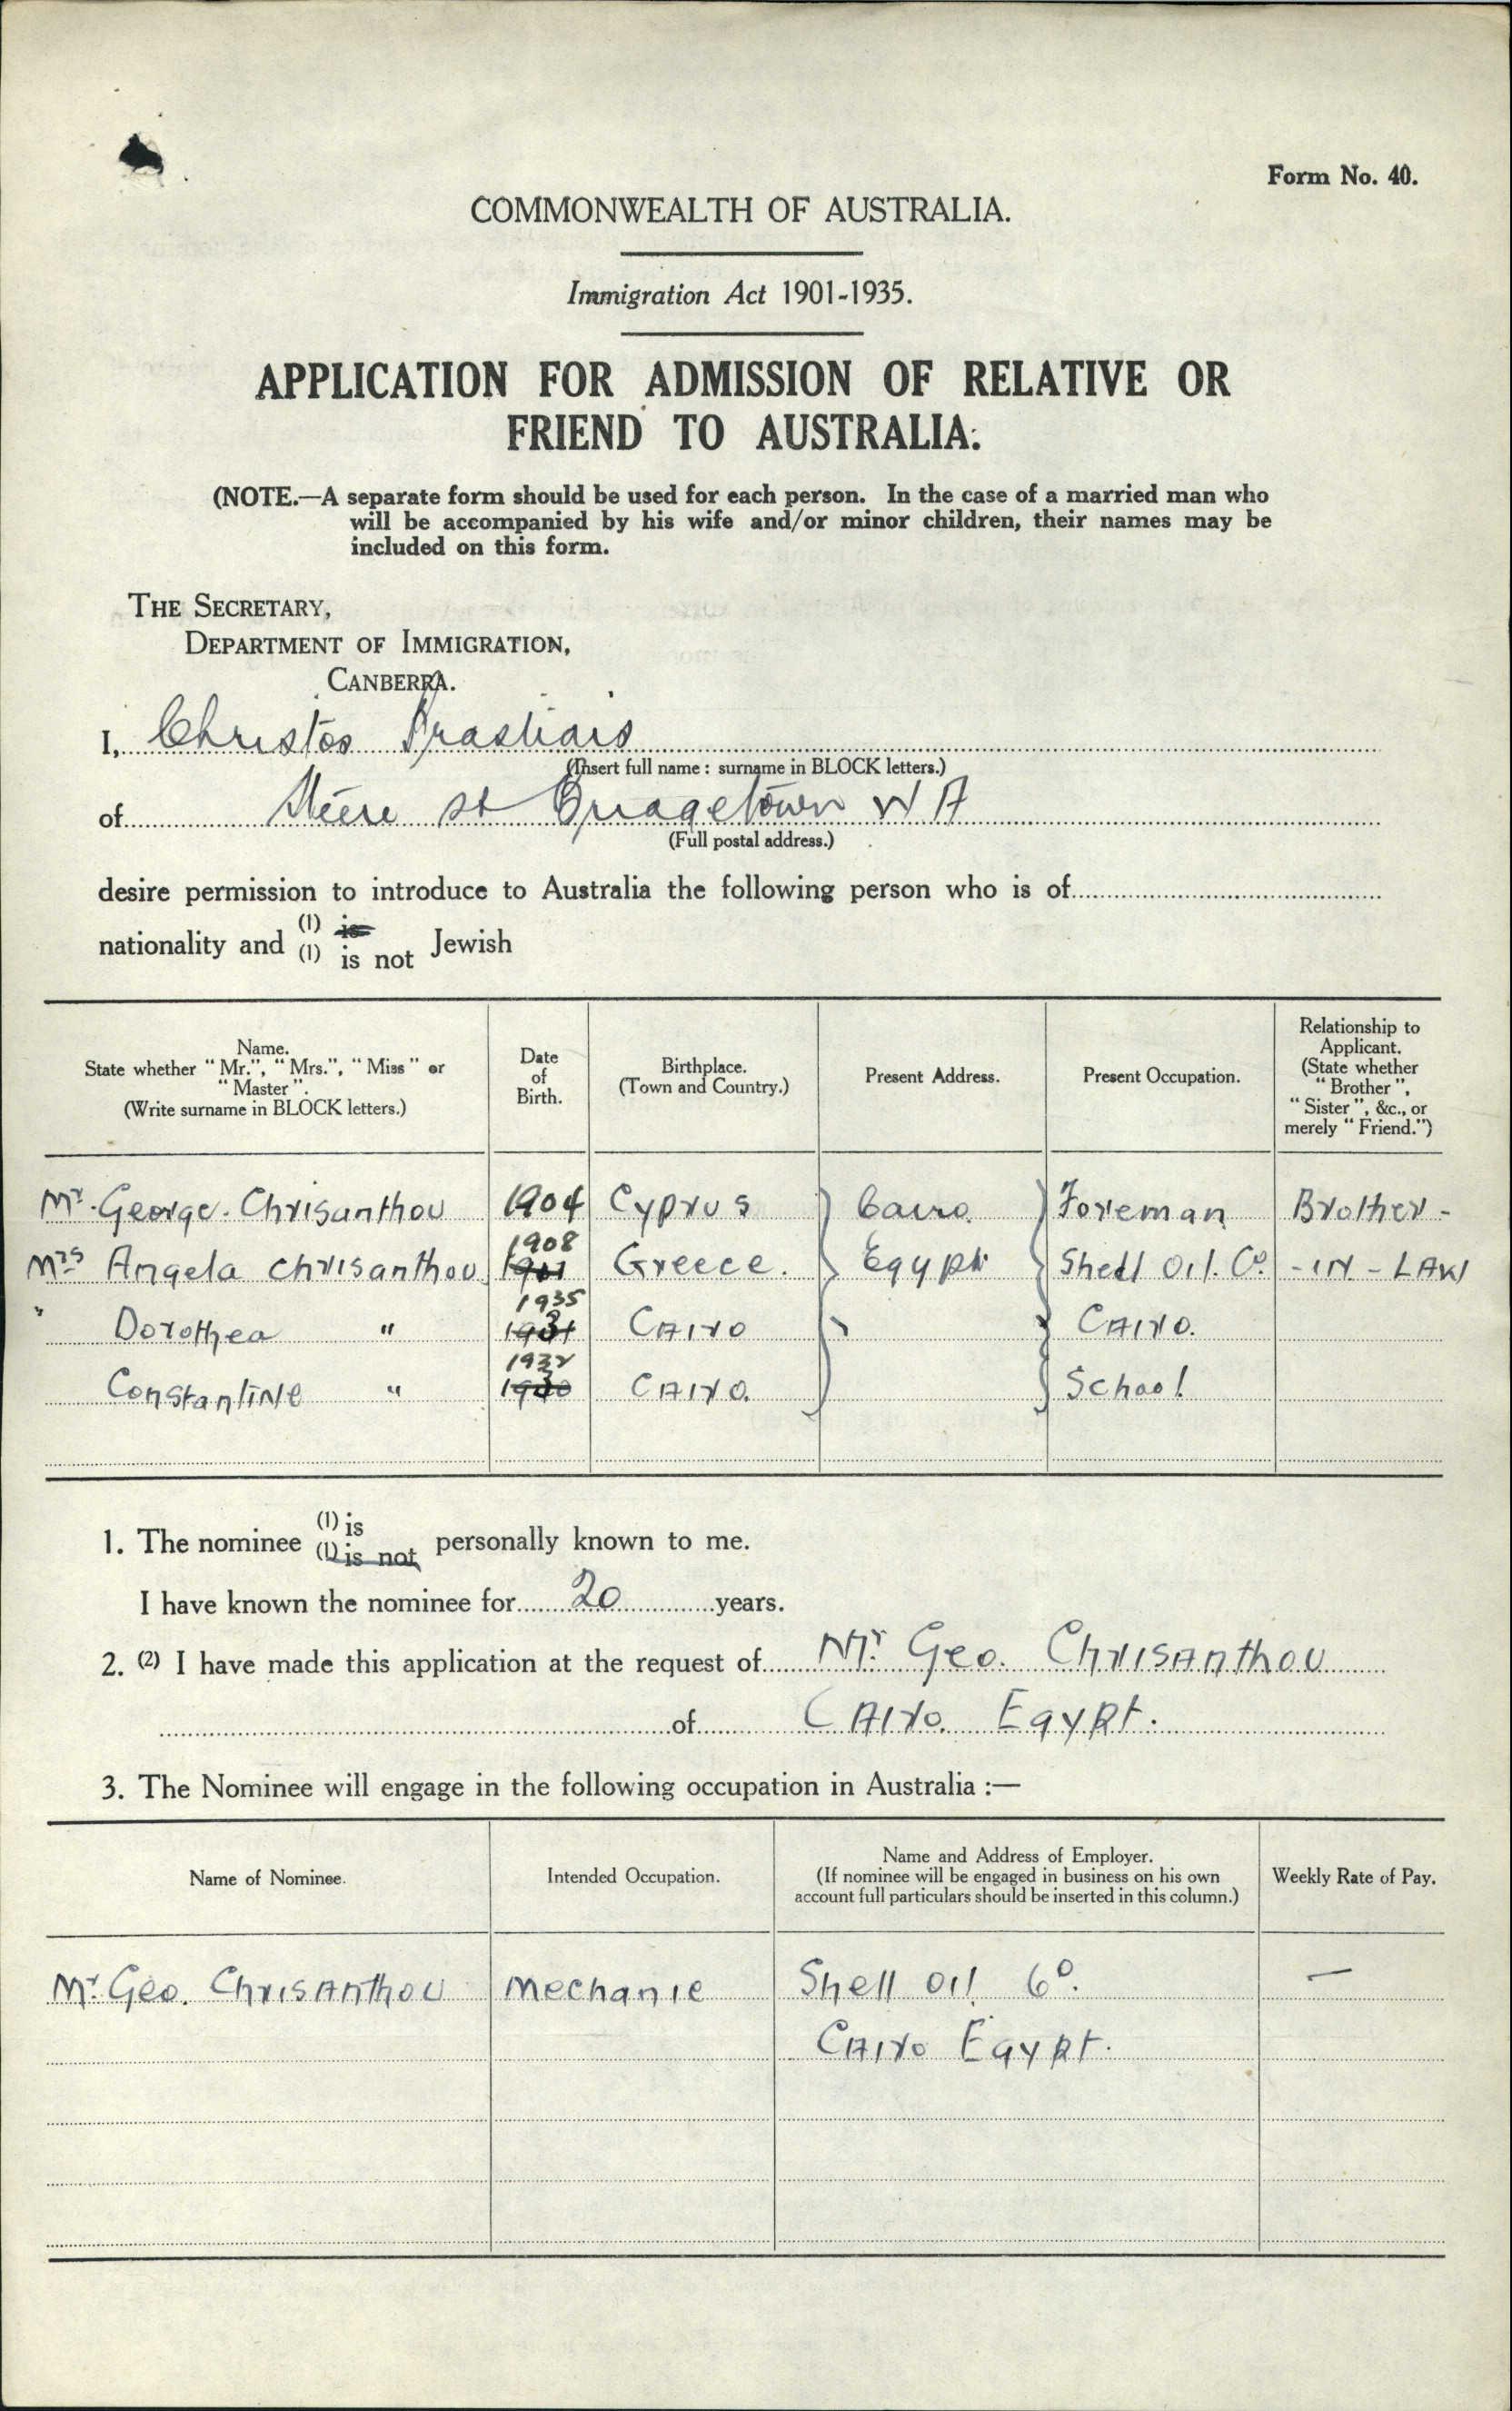 Form No. 40.
COMMONWEALTH OF AUSTRALIA.
Immigration Act 1901-1935.
APPLICATION FOR ADMISSION OF RELATIVE OR
FRIEND TO AUSTRALIA.
(NOTE.—A separate form should be used for each person. In the case of a married man who
will be accompanied by his wife and/or minor children, their names may be
included on this form.
THE SECRETARY,
DEPARTMENT OF IMMIGRATION,
CANBERRA.
I, Christos
(Insert full name : surname in BLOCK letters.)
of Steere St Bridgetown W A
(Full postal address.)
desire permission to introduce to Australia the following person who is of
nationality and (1) is (1) is not Jewish
Name. State whether "Mr.", "Mrs.", "Miss" or "Master". (Write surname in BLOCK letters.) Date of Birth. Birthplace. (Town and Country.) Present Address. Present Occupation. Relationship to Applicant. (State whether "Brother", "Sister", &c., or merely "Friend.")
Mr. George. Chrisanthou 1904 Cyprus Cairo Foreman Brother -
Mrs Angela Chrisanthou 1908 Greece. Egypt Shell Oil. Co. - IN - LAW
" Dorothea " 1935 1931 CAIro " CAIro.
Constantine " 1932 1930 CAIro. School
1. The nominee (1) is (1) is not personally known to me.
I have known the nominee for 20 years.
2. (2) I have made this application at the request of Mr. Geo. ChrisAnthou
of CAIro. Egypt.
3. The Nominee will engage in the following occupation in Australia :—
Name of Nominee. Intended Occupation. Name and Address of Employer. (If nominee will be engaged in business on his own account full particulars should be inserted in this column.) Weekly Rate of Pay.
Mr Geo. ChrisAnthou Mechanic Shell Oil Co. —
CAIro Egypt.